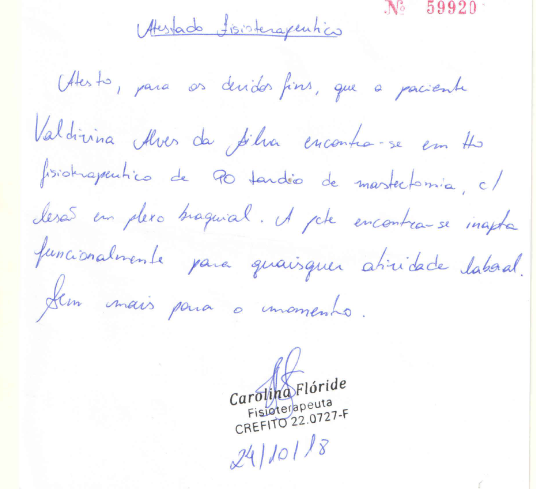 Nº 59920
Atestado fisioterapeutico
Atesto, para os devidos fins, que a paciente
Valdivina Alves da Silva encontra-se em tto
fisioterapeutico de PO tardio de mastectomia, c/
lesão em plexo braquial. A pcte encontra-se inapta
funcionalmente para quaisquer atividade laboral.
Sem mais para o momento.
Carolina Flóride
Fisioterapeuta
CREFITO 22.0727-F
24/10/18